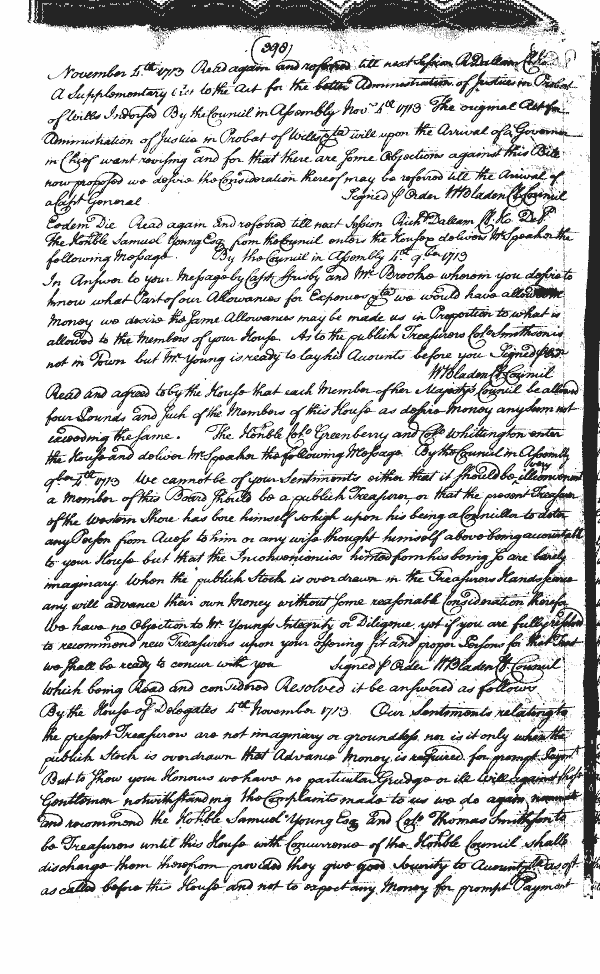 (398)
November 4th 1713 Read again and referred till next Session R Dallam Cl Ho
A Supplementary to the Act for the better Administration of Justice in Probat
of Wills Indorsed By the Council in Assembly Novr 4th 1713 The original Act for
Administration of Justice in Probat of Wills &ca will upon the Arrival of a Governor
in Chief want revising and for that there are some Objections against this Bill
now proposed we desire the Consideration thereof may be referred till the Arrival of
a Capt General Signed p Order W Bladen Cl Council
Eodem Die Read again and referred till next Session Richd Dallam Cl. Ho. Del
The Honble Samuel Young Esq from the Council enters the House & delivers Mr Speaker the
following Message. By the Council in Assembly 4th 9ber 1713
In Answer to your Message by Capt and Mr Brooke wherein you desire to
know what Part of our Allowances for Expences &ca we would have allowed in
Money we desire the same Allowances may be made us in Proportion to what is
allowed to the Members of your House. As to the publick Treasurers Colo Smithson is
not in Town but Mr Young is ready to lay his Accounts before you Signed p Order
W Bladen Cl Council
Read and agreed to by the House that each Member of her Majestys Council be allowed
four Pounds and such of the Members of this House as desire Money any Sum not
exceeding the same. The Honble Colo Greenberry and Colo Whittington enter
the House and deliver Mr Speaker the following Message. By the Council in Assembly
9ber 4th 1713 We cannot be of your Sentiments either that it should be very inconvenient
a Member of this Board should be a publick Treasurer or that the present Treasurer
of the Western Shore has bore himself so high upon his being a Councillor to deter
any Person from Access to him or any wise thought himself above being accountable
to your House but that the Inconveniencies hinted from his being so are barely
imaginary. When the publick Stock is overdrawn in the Treasurers Hands scarce
any will advance their own Money without some reasonable Consideration therefor
We have no Objection to Mr Youngs Integrity or Diligence yet if you are fully resolved
to recommend new Treasurers upon your offering fit and proper Persons for that Trust
we shall be ready to concur with you Signed p Order W Bladen Cl Council
Which being Read and considered Resolved it be answered as follows
By the House of Delegates 4th November 1713. Our Sentiments relating to
the present Treasurer are not imaginary or groundless nor is it only when the
publick Stock is overdrawn that Advance Money is required for prompt Paymt
But to show your Honours we have no particular Grudge or ill Will against those
Gentlemen notwithstanding the Complaints made to us we do again nominate
and recommend the Honble Samuel Young Esq and Colo Thomas Smithson to
be Treasurers until this House with Concurrence of the Honble Council shall
discharge them therefrom provided they give good Security to Account &ca as oft
as called before this House and not to expect any Money for prompt Payment